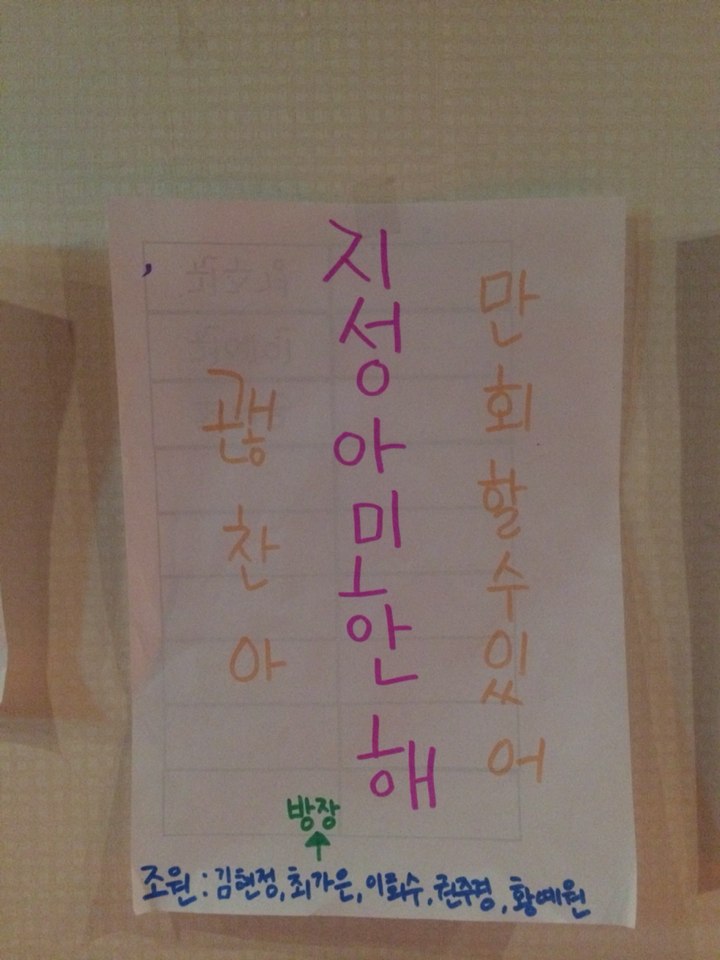 괜찮아
지성아미안해
만회할수있어
방장
조원 : 김현정, 최가은, 권주경, 황예원